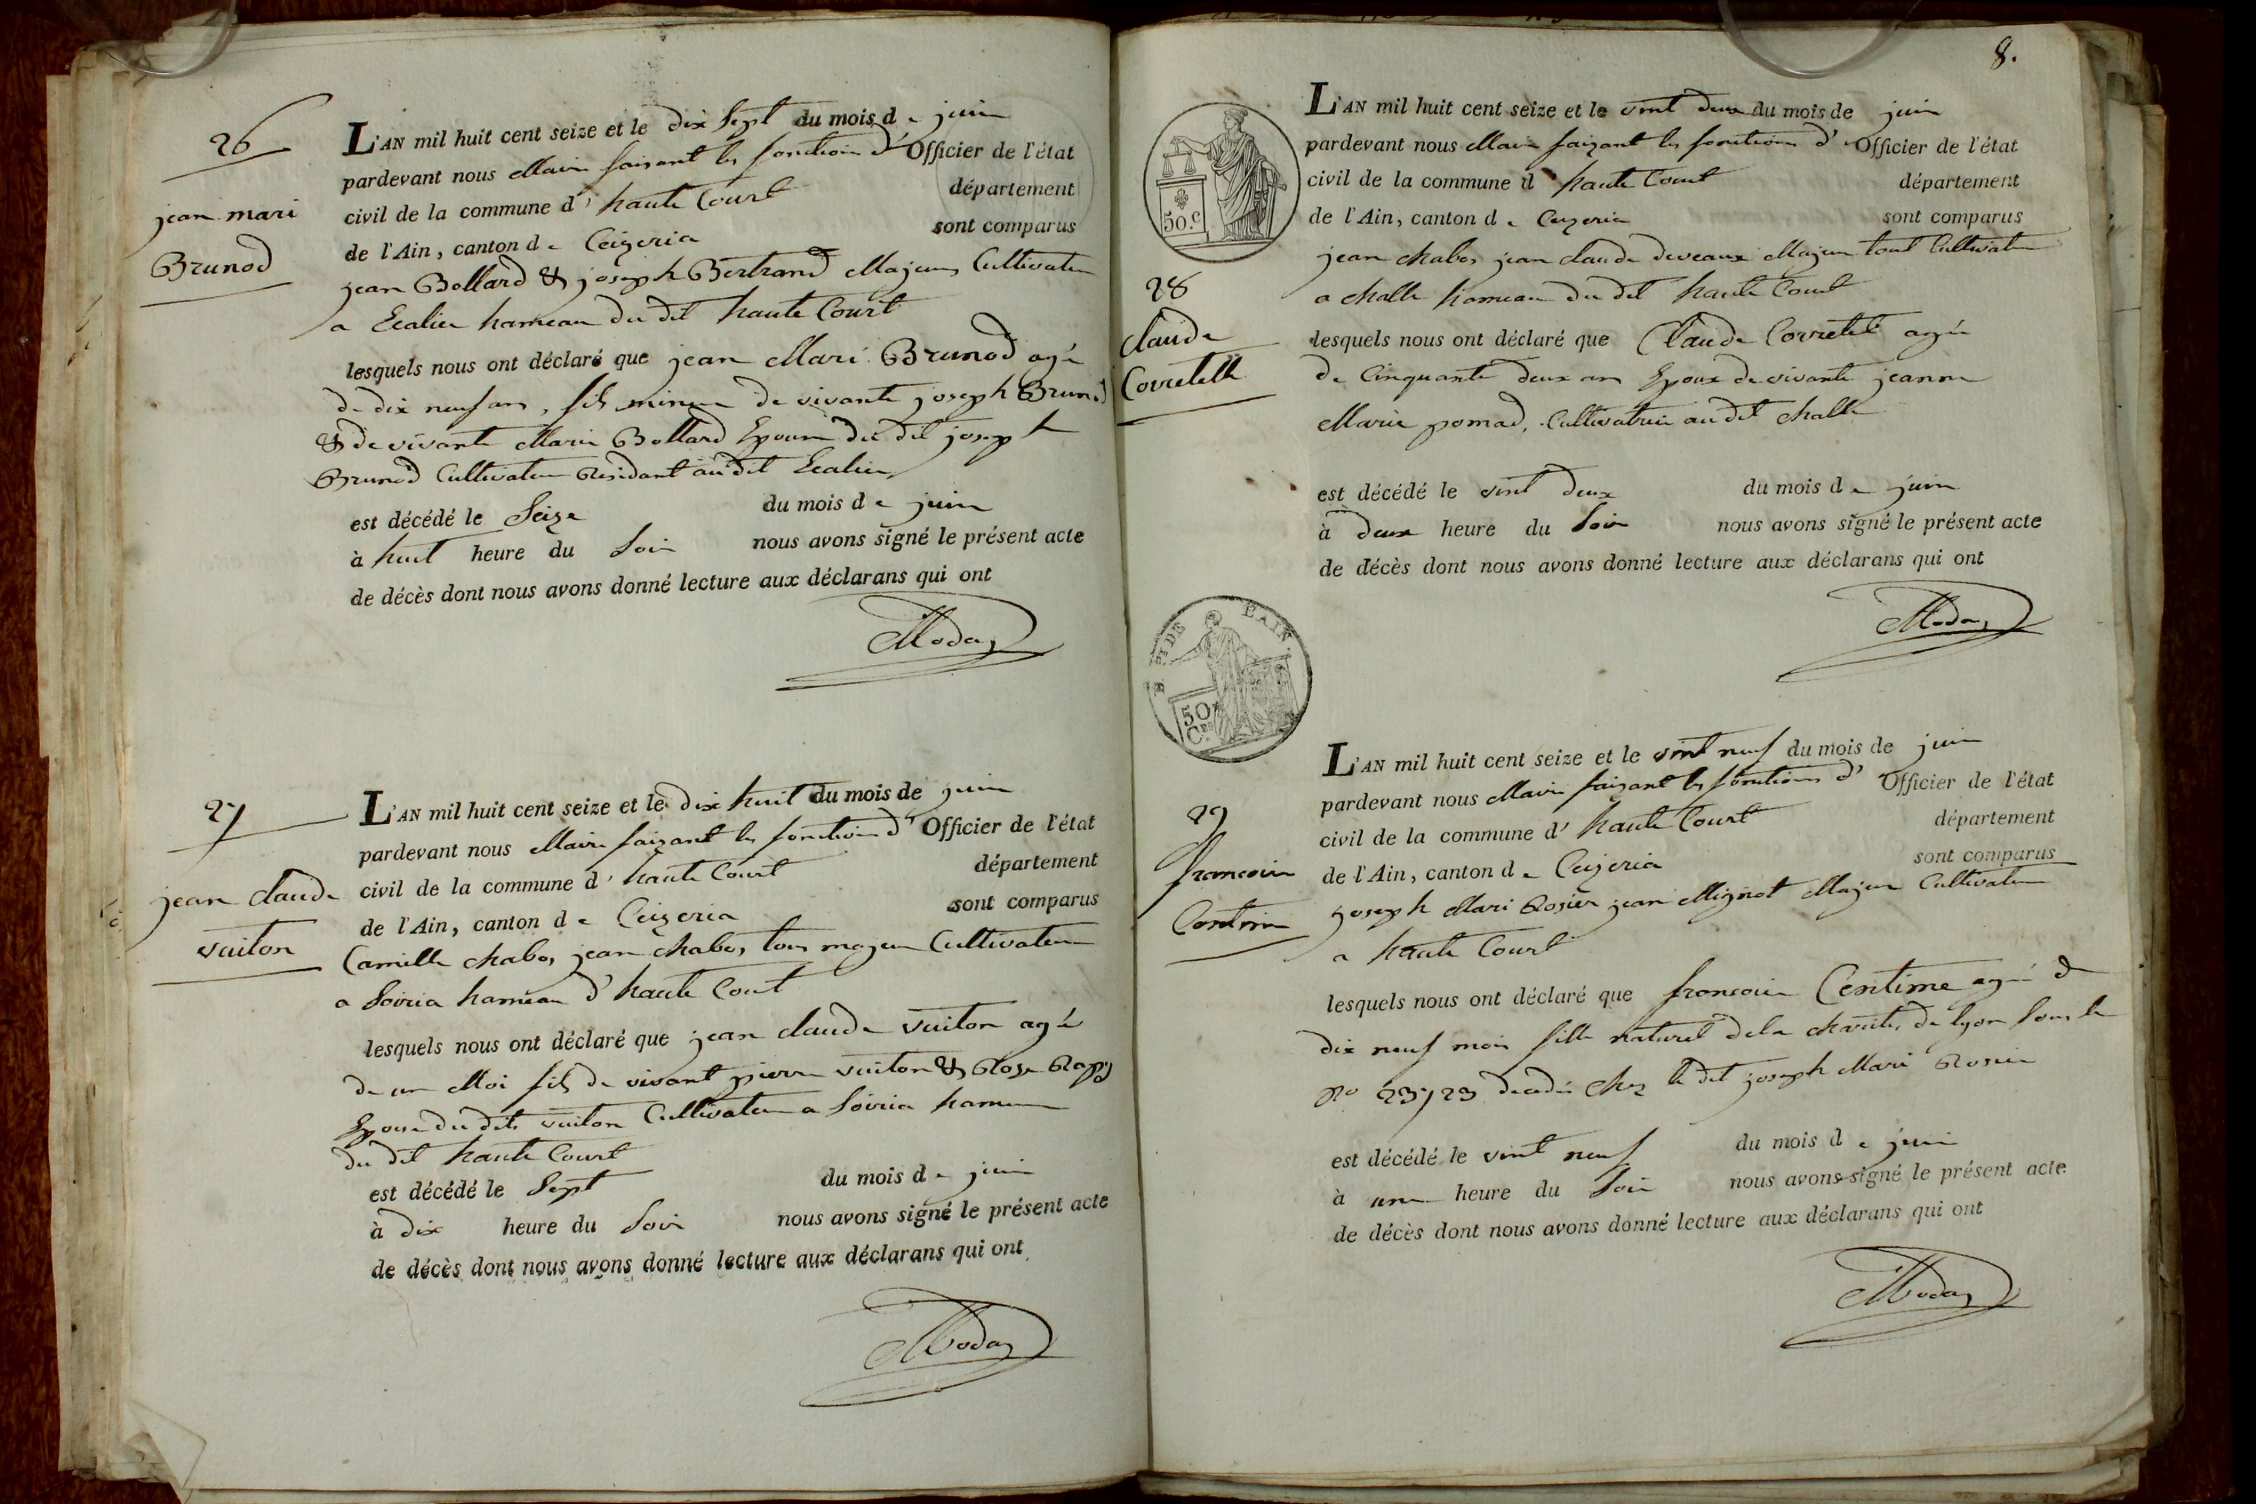 26
jean mari
Brunod
L'AN mil huit cent seize et le dix Sept du mois de juin
pardevant nous Maire faisant les fonction d'Officier de l'état
civil de la commune d'haute Court département
de l'Ain, canton de Ceizeria sont comparus
jean Bollard & joseph Bertrand Majeurs Cultivateur
a Ecalier hameau du dit haute Court
lesquels nous ont déclaré que jean Mari Brunod agé
de dix neuf ans, fils mineur de vivante joseph Brunod
& de vivante Marie Bollard Epouse du dit joseph
Brunod Cultivateur Residant au dit Ecalier
est décédé le Seize du mois de juin
à huit heure du Soir nous avons signé le présent acte
de décès dont nous avons donné lecture aux déclarans qui ont
27
jean claude
vuiton
L'AN mil huit cent seize et le dix huit du mois de juin
pardevant nous Maire faisant les fonction d'Officier de l'état
civil de la commune d'haute Court département
de l'Ain, canton de Ceizeria sont comparus
Camille chabos jean chabos tous majeur Cultivateur
a Soiria hameau d'haute Court
lesquels nous ont déclaré que jean claude vuiton agé
de un Moi fils de vivant pierre vuiton & Rose
Epouse du dit vuiton Cultivateur a Soiria hameau
du dit haute Court
est décédé le Sept du mois de juin
à dix heure du Soir nous avons signé le présent acte
de décès dont nous avons donné lecture aux déclarans qui ont
8.
50.c
28
claude
Corretelle
L'AN mil huit cent seize et le vint deux du mois de juin
pardevant nous Maire faizant les fonctions d'Officier de l'état
civil de la commune d haute Court département
de l'Ain, canton de Ceyzeria sont comparus
jean chabos jean claude deveaux Majeur tout Cultivateur
a challe hameau du dit haute Court
lesquels nous ont déclaré que Claude Corretel agée
de Cinquante deux ans Epoux de vivante jeanne
Marie pomad, Cultivatrice au dit challe
est décédé le vint deux du mois de juin
à deux heure du Soir nous avons signé le présent acte
de décès dont nous avons donné lecture aux déclarans qui ont
DE L'AIN.
50
Ces
29
francoise
Centime
L'AN mil huit cent seize et le vint neuf du mois de juin
pardevant nous Maire faizant les fonctions d'Officier de l'état
civil de la commune d'haute Court département
de l'Ain, canton de Ceizeria sont comparus
joseph Mari Rosier jean Mignot Majeur Cultivateur
a haute Court
lesquels nous ont déclaré que francoise Centime agé de
dix neuf mois fille naturel de la charité, de lyon Sous le
No 23723 decedée chez le dit joseph Mari Rosier
est décédé le vint neuf du mois de juin
à une heure du Soir nous avons signé le présent acte
de décès dont nous avons donné lecture aux déclarans qui ont